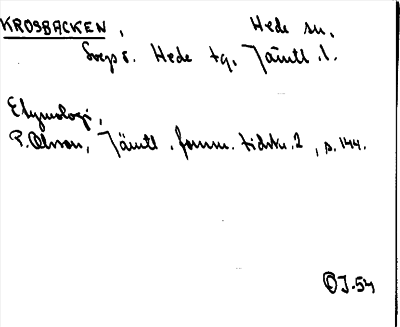 KROSBACKEN, Hede sn.
Svegs o. Hede tg. Jämtl. l.
Etymologi,
P. Olsson, Jämtl. fornm. tidskr. 2, s. 144.
OJ-54